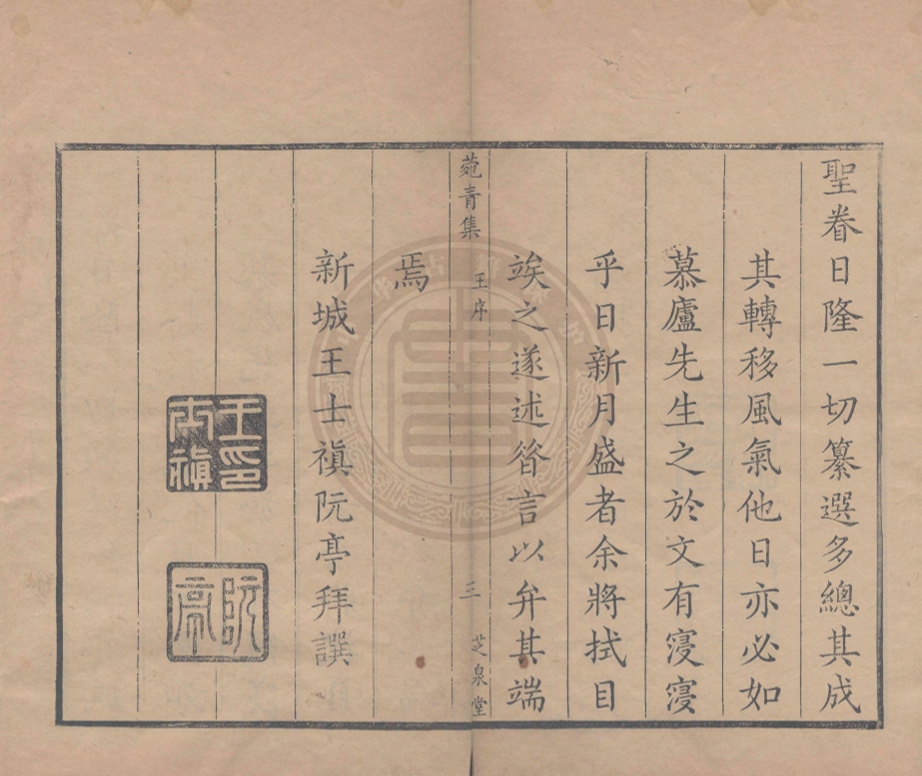 聖眷日隆一切纂選多總其成
其轉移風氣他日亦必如
慕廬先生之於文有寖寖
乎日新月盛者余將拭目
竢之遂述昝言以弁其端
菀青集 王序 三 芝泉堂
焉
新城王士禛阮亭拜譔
王印
士禛
阮亭